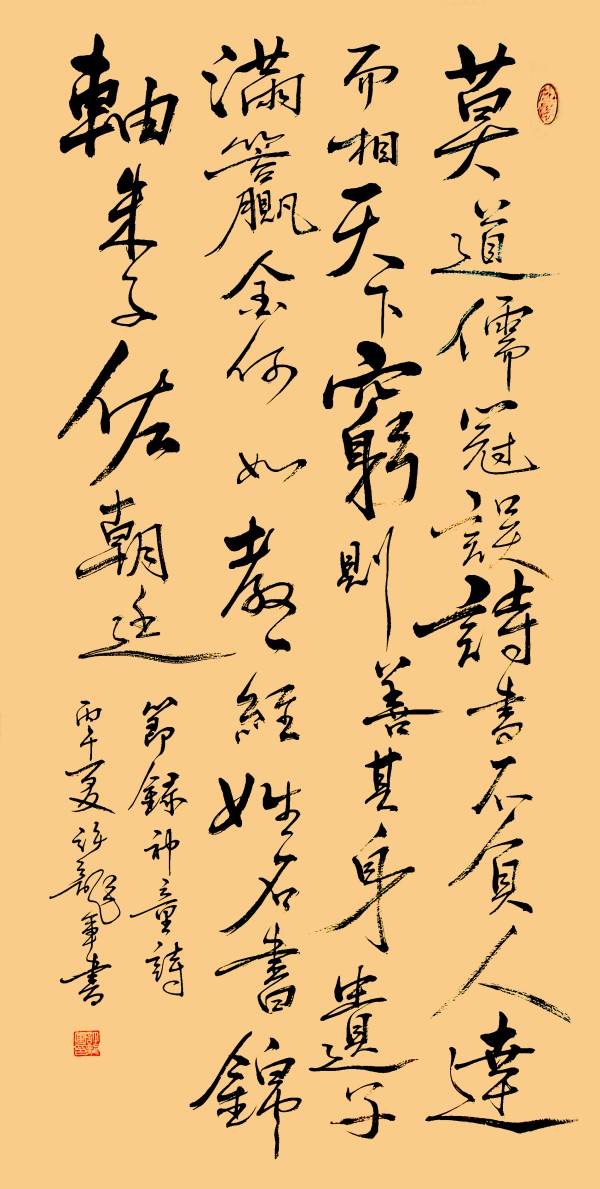 莫道儒冠誤詩書不負人達
而相天下窮則善其身遺子
滿籯金何如教一經姓名書錦
軸朱子佐朝廷
節錄神童詩
丙午夏許龍書